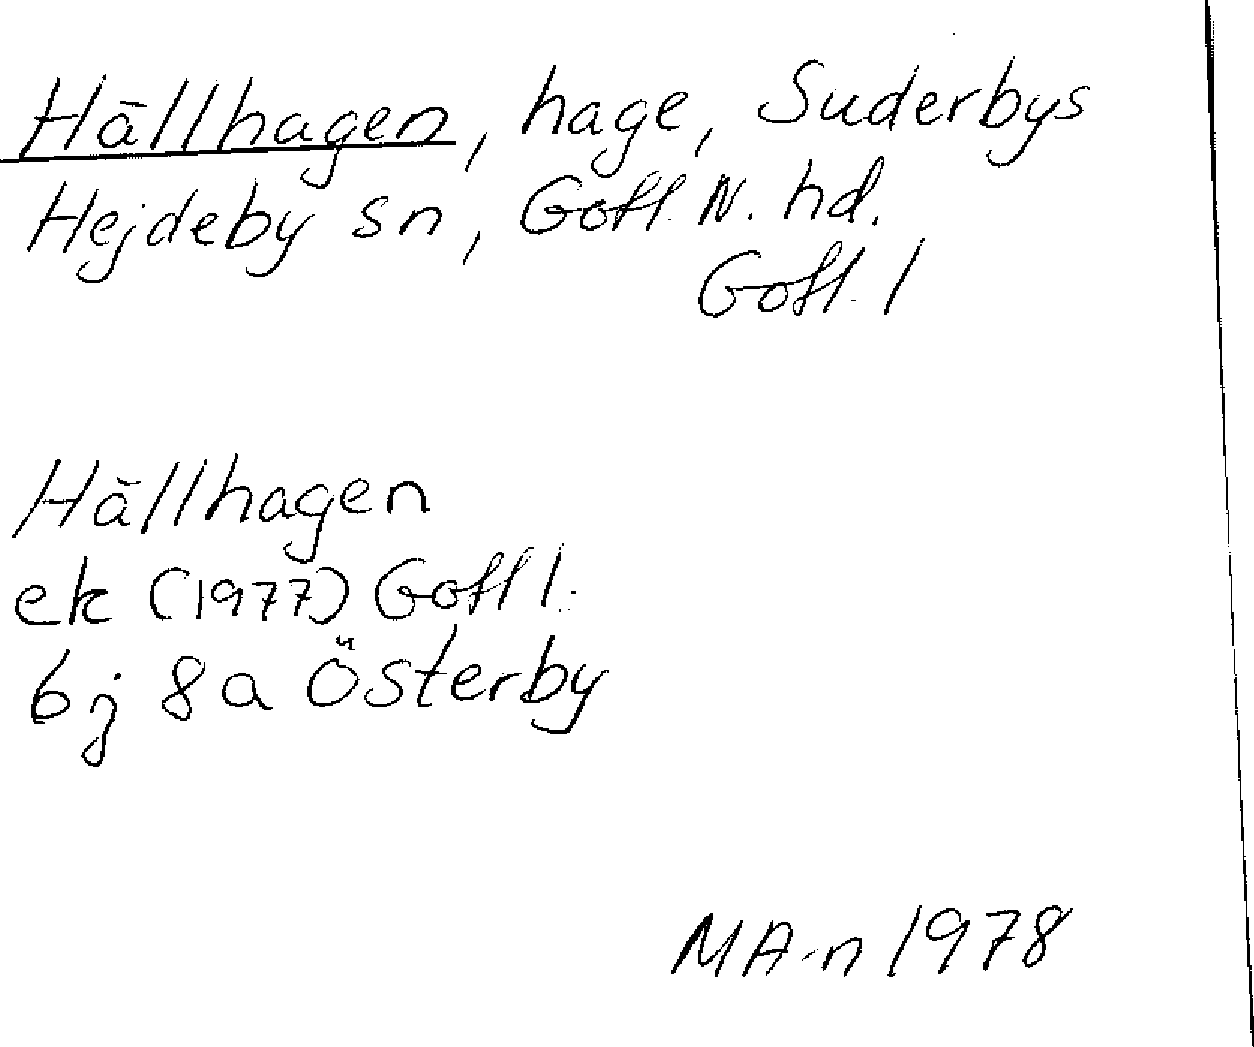 Hällhagen, hage, Suderbys
Hejdeby sn, Gotl. N. hd.
Gotl. l
Hällhagen
ek (1977) Gotl l.
6j 8a Österby
MA-n 1978